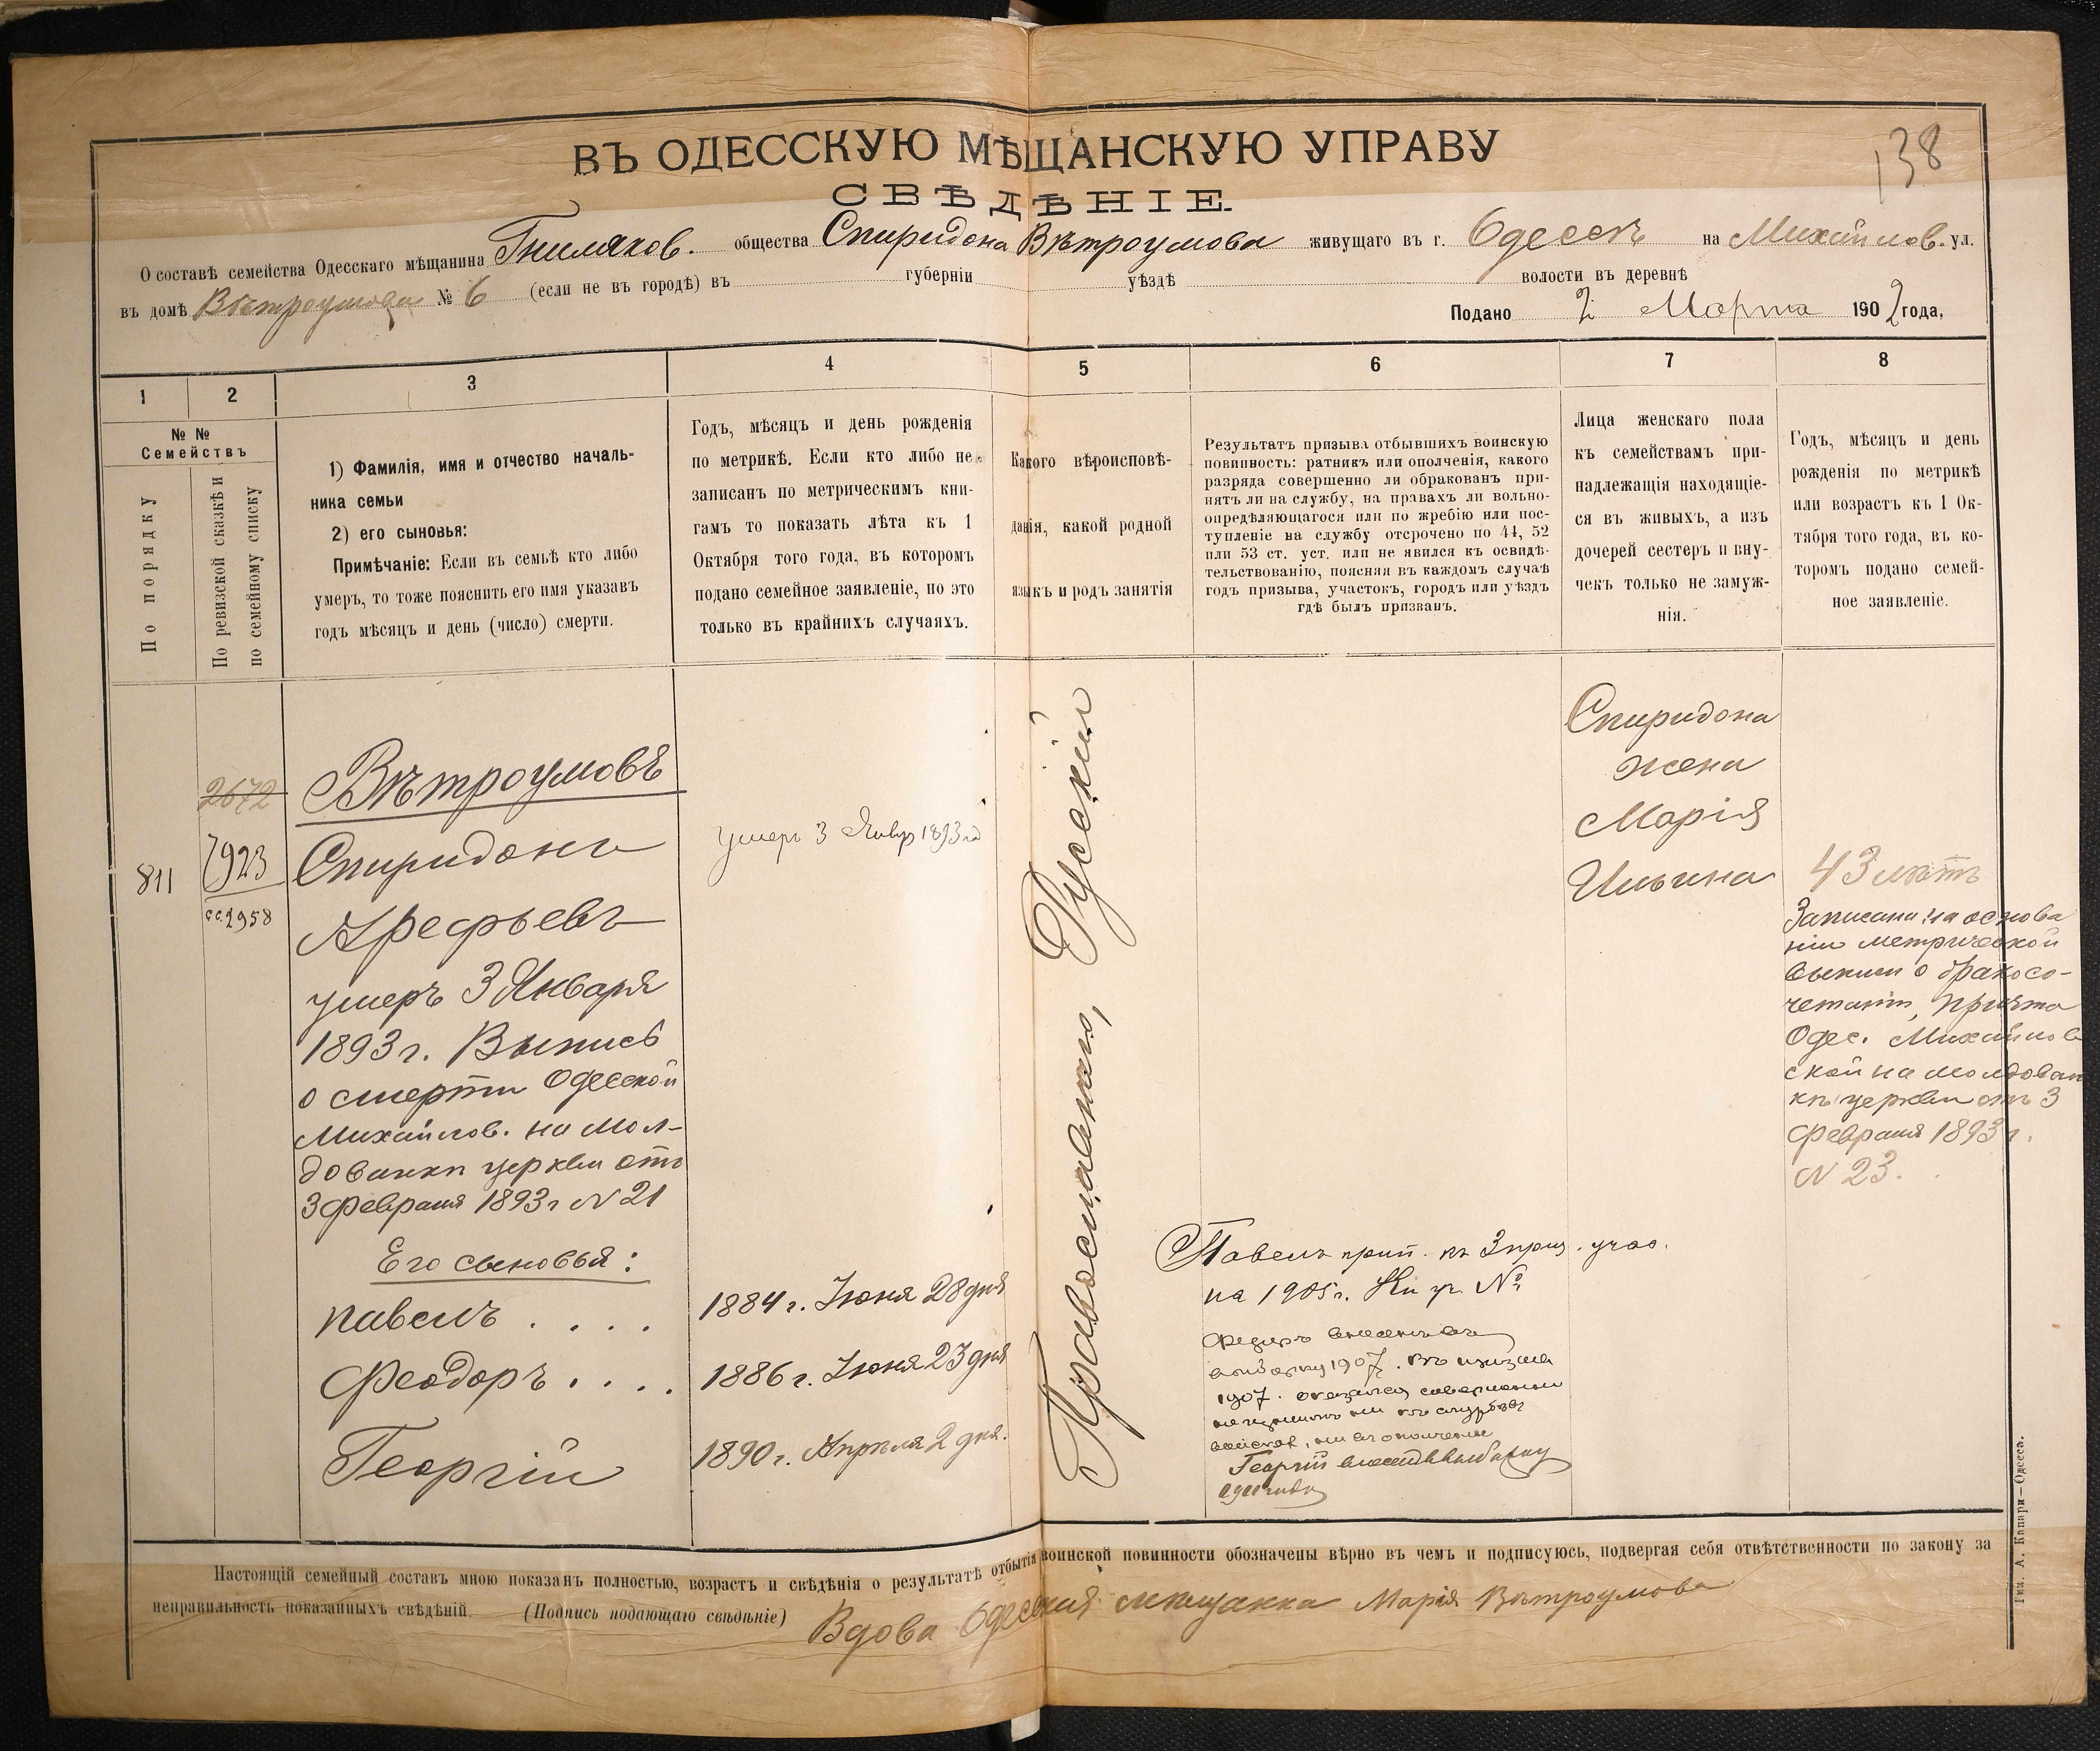 138
ВЪ ОДЕССКУЮ МѢЩАНСКУЮ УПРАВУ
СВѢДѢНІЕ.
О составѣ семейства Одесскаго мѣщанина Гниляков. общества Спиридона Вѣтроумова живущаго въ г. Одессѣ на Михайлов. ул.
въ домѣ Вѣтроумова № 6 (если не въ городѣ) въ губерніи уѣздѣ волости въ деревнѣ
Подано 2 Марта 1902 года,
1
2
3
4
5
6
7
8
№ №
Семействъ
По порядку
По ревизской сказкѣ и
по семейному списку
1) Фамилія, имя и отчество началь-
ника семьи
2) его сыновья:
Примѣчаніе: Если въ семьѣ кто либо
умеръ, то тоже пояснить его имя указавъ
годъ мѣсяцъ и день (число) смерти.
Годъ, мѣсяцъ и день рожденія
по метрикѣ. Если кто либо не
записанъ по метрическимъ кни-
гамъ то показать лѣта къ 1
Октября того года, въ которомъ
подано семейное заявленіе, но это
только въ крайнихъ случаяхъ.
Какого вѣроисповѣ-
данія, какой родной
языкъ и родъ занятія
Результатъ призыва отбывшихъ воинскую
повинность: ратникъ или ополченія, какого
разряда совершенно ли обракованъ при-
нятъ ли на службу, на правахъ ли вольно-
опредѣляющагося или по жребію или пос-
тупленіе на службу отсрочено по 44, 52
или 53 ст. уст. или не явился къ освидѣ-
тельствованію, поясняя въ каждомъ случаѣ
годъ призыва, участокъ, городъ или уѣздъ
гдѣ былъ призванъ.
Лица женскаго пола
къ семействамъ при-
надлежащія находящіе-
ся въ живыхъ, а изъ
дочерей сестеръ и вну-
чекъ только не замуж-
нія.
Годъ, мѣсяцъ и день
рожденія по метрикѣ
или возрастъ къ 1 Ок-
тября того года, въ ко-
торомъ подано семей-
ное заявленіе.
811
2672
7923
сс. 2958
Вѣтроумовъ
Спиридонъ
Арефьевъ
умеръ 3 Января
1893 г. Выпись
о смерти Одесской
Михайлов. на Мол-
дованкѣ церкви отъ
3 Февраля 1893 г N 21
Его сыновья:
Павелъ . . . .
Феодоръ . . . .
Георгій
умеръ 3 Январ 1893 год
1884 г. Іюня 28 дня
1886 г. Іюня 23 дня
1890 г. Апрѣля 2 дня.
Православнаго, Русскій
Павелъ прип. къ 3 приз. учас.
на 1905 г.
1907. въ призыв
1907. оказался совершенно
Георгій
Спиридона
жена
Марія
Ильина
43 лѣтъ
Записана на основа
ніи метрической
выписи о бракосо-
четаніи, причта
Одес. Михайлов
ской на Молдован
кѣ церкви отъ 3
Февраля 1893 г.
N 23.
Настоящій семейный составъ мною показанъ полностью, возрастъ и свѣдѣнія о результатѣ отбытія воинской повинности обозначены вѣрно въ чемъ и подписуюсь, подвергая себя отвѣтственности по закону за
неправильность показанныхъ свѣдѣній. (Подпись подающаго свѣдѣніе) Вдова Одесская мѣщанка Марія Вѣтроумова
Тип. А. Капари—Одесса.